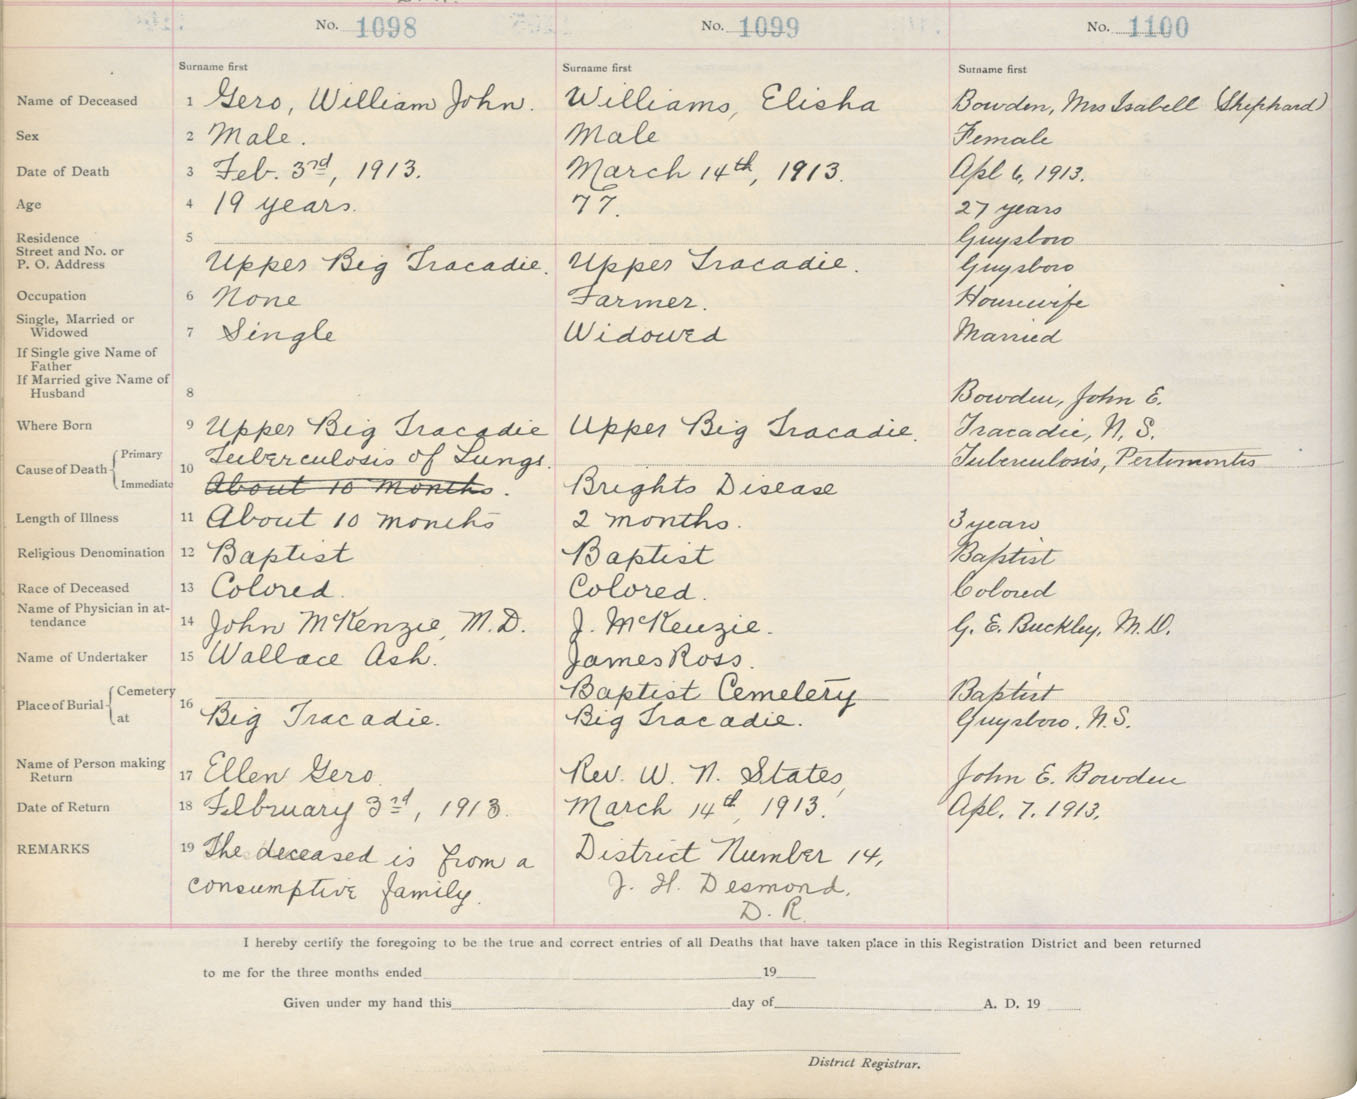 No. 1098 No. 1099 No. 1100
Surname first Surname first Surname first
Name of Deceased 1 Gero, William John. Williams, Elisha Bowden, Mrs Isabell (Shephard)
Sex 2 Male. Male Female
Date of Death 3 Feb. 3rd, 1913. March 14th, 1913. Apl 6, 1913.
Age 4 19 years. 77. 27 years
Residence 5 Guysboro
Street and No. or
P. O. Address Upper Big Tracadie. Upper Tracadie. Guysboro
Occupation 6 None Farmer. Housewife
Single, Married or
Widowed 7 Single Widowed Married
If Single give Name of
Father
If Married give Name of
Husband 8 Bowden, John E.
Where Born 9 Upper Big Tracadie Upper Big Tracadie. Tracadie, N. S.
Cause of Death Primary 10 Tuberculosis of Lungs. Tuberculosis,
Immediate About 10 months. Brights Disease
Length of Illness 11 About 10 months 2 months. 3 years
Religious Denomination 12 Baptist Baptist Baptist
Race of Deceased 13 Colored. Colored. Colored
Name of Physician in at-
tendance 14 John McKenzie, M.D. J. McKenzie. G. E. Buckley, M.D.
Name of Undertaker 15 Wallace Ash. James Ross.
Place of Burial Cemetery 16 Baptist Cemetery Baptist
at Big Tracadie. Big Tracadie. Guysboro, N.S.
Name of Person making
Return 17 Ellen Gero Rev. W. N. States, John E. Bowden
Date of Return 18 Felbruary 3rd, 1913. March 14th, 1913. Apl. 7. 1913.
REMARKS 19 The deceased is from a District Number 14,
consumptive family. J. H. Desmond,
D. R.
I hereby certify the foregoing to be the true and correct entries of all Deaths that have taken place in this Registration District and been returned
to me for the three months ended 19
Given under my hand this day of A. D. 19
District Registrar.